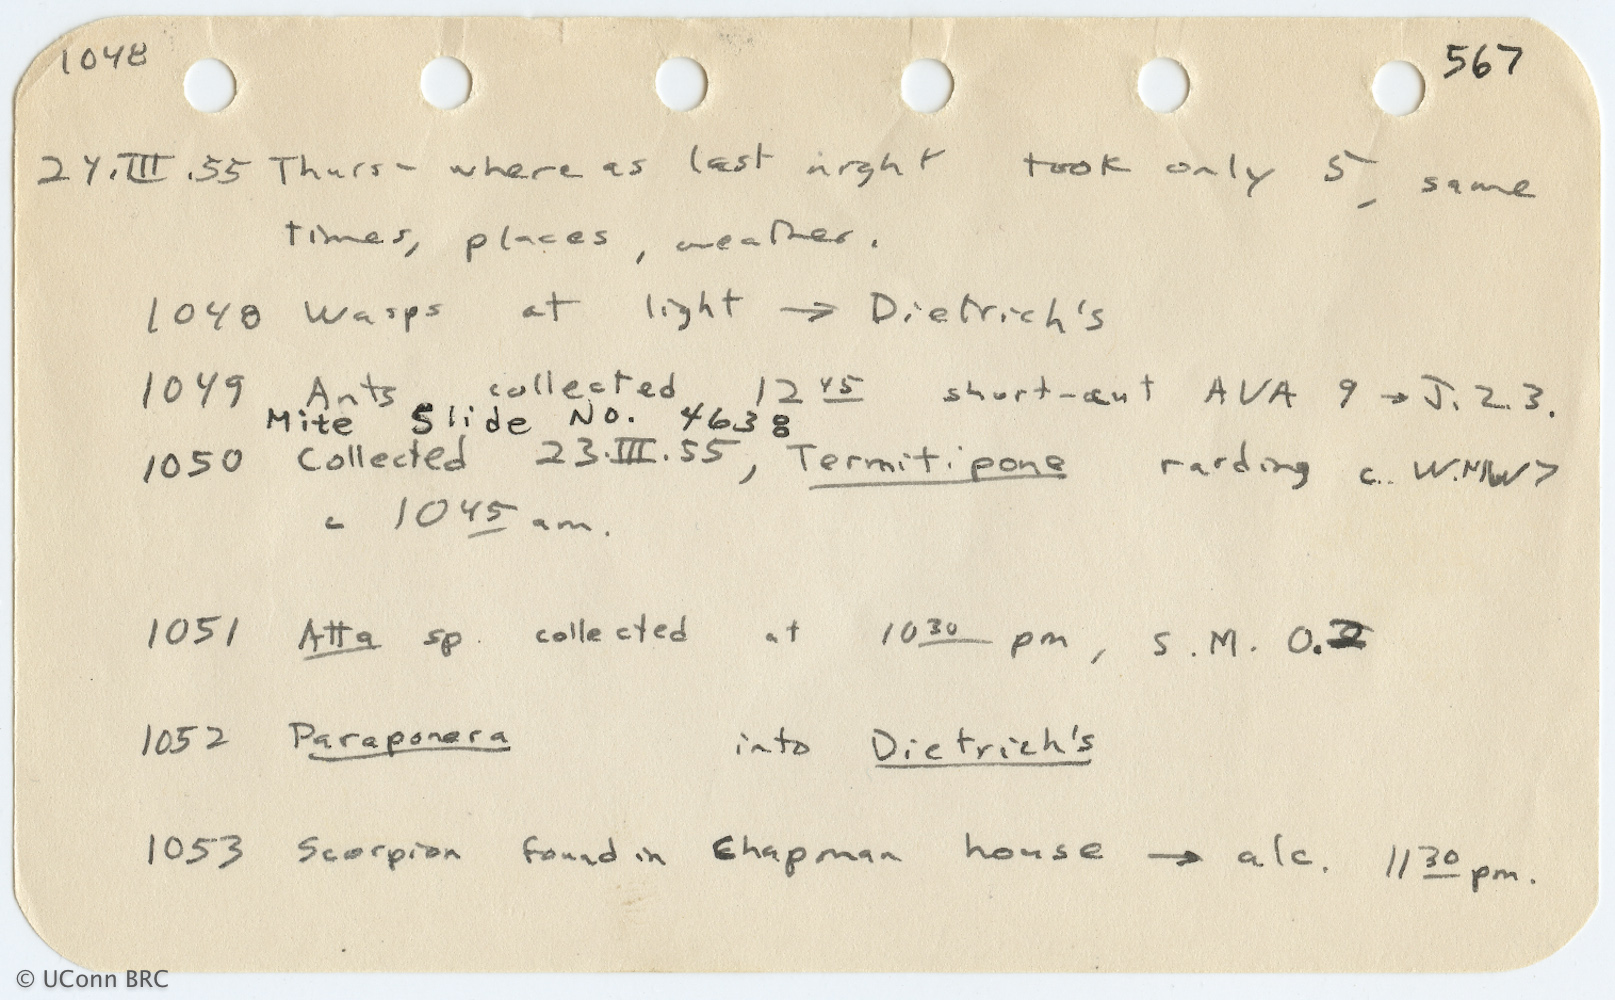 1048 567
24.III.55 Thurs- where as last night took only 5, same
times, places, weather.
1048 Wasps at light → Dietrich's
1049 Ants collected 12 45 short-cut AVA 9 → J. 2.3.
Mite Slide No. 4638
1050 Collected 23.III.55, Termitipone raiding c. W.
c 10 45 am.
1051 Atta sp. collected at 10 30 pm, S. M. O.
1052 Paraponera into Dietrich's
1053 Scorpion found in Chapman house → alc. 11 30 pm.
© UConn BRC